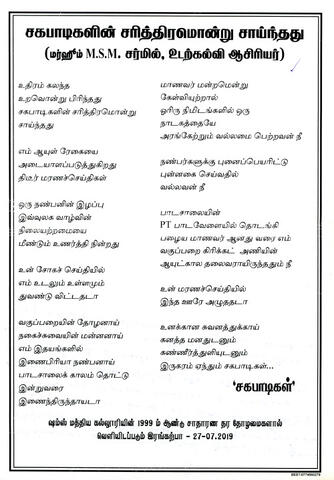 சகபாடிகளின் சரித்திரமொன்று சாய்ந்தது
(மர்ஹூம் M.S.M. சர்மில், உடற்கல்வி ஆசிரியர்)
உதிரம் கலந்த
உறவொன்று பிரிந்தது
சகபாடிகளின் சரித்திரமொன்று
சாய்ந்தது
எம் ஆயுள் ரேகையை
அடையாளப்படுத்துகிறது
திடீர் மரணச்செய்திகள்
ஒரு நண்பனின் இழப்பு
இவ்வுலக வாழ்வின்
நிலையற்மையை
மீண்டும் உணர்த்தி நின்றது
உன் சோகச் செய்தியில்
எம் உடலும் உள்ளமும்
துவண்டு விட்டதடா
வகுப்பறையின் தோழனாய்
நகைச்சுவையின் மன்னனாய்
எம் இதயங்களில்
இணைபிரியா நண்பனாய்
பாடசாலைக் காலம் தொட்டு
இன்றுவரை
இணைந்திருந்தாயடா
மாணவர் மன்றமென்று
கேள்வியுற்றால்
ஓரிரு நிமிடங்களில் ஒரு
நாடகத்தையே
அரங்கேற்றும் வல்லமை பெற்றவன் நீ
நண்பர்களுக்கு புனைப்பெயரிட்டு
புன்னகை செய்வதில்
வல்லவன் நீ
பாடசாலையின்
PT பாடவேளையில் தொடங்கி
பழைய மாணவர் ஆனது வரை எம்
வகுப்பறை கிரிக்கட் அணியின்
ஆயுட்கால தலைவராயிருந்ததும் நீ
உன் மரணச்செய்தியில்
இந்த ஊரே அழுததடா
உனக்கான சுவனத்துக்காய்
கனத்த மனதுடனும்
கண்ணீர்த்துளியுடனும்
இருகரம் ஏந்தும் சகபாடிகள்...
‘சகபாடிகள்’
ஷம்ஸ் மத்திய கல்லூரியின் 1999 ம் ஆண்டு சாதாரண தர தோழமைகளால்
வெளியிடப்படும் இரங்கற்பா - 27-07-2019